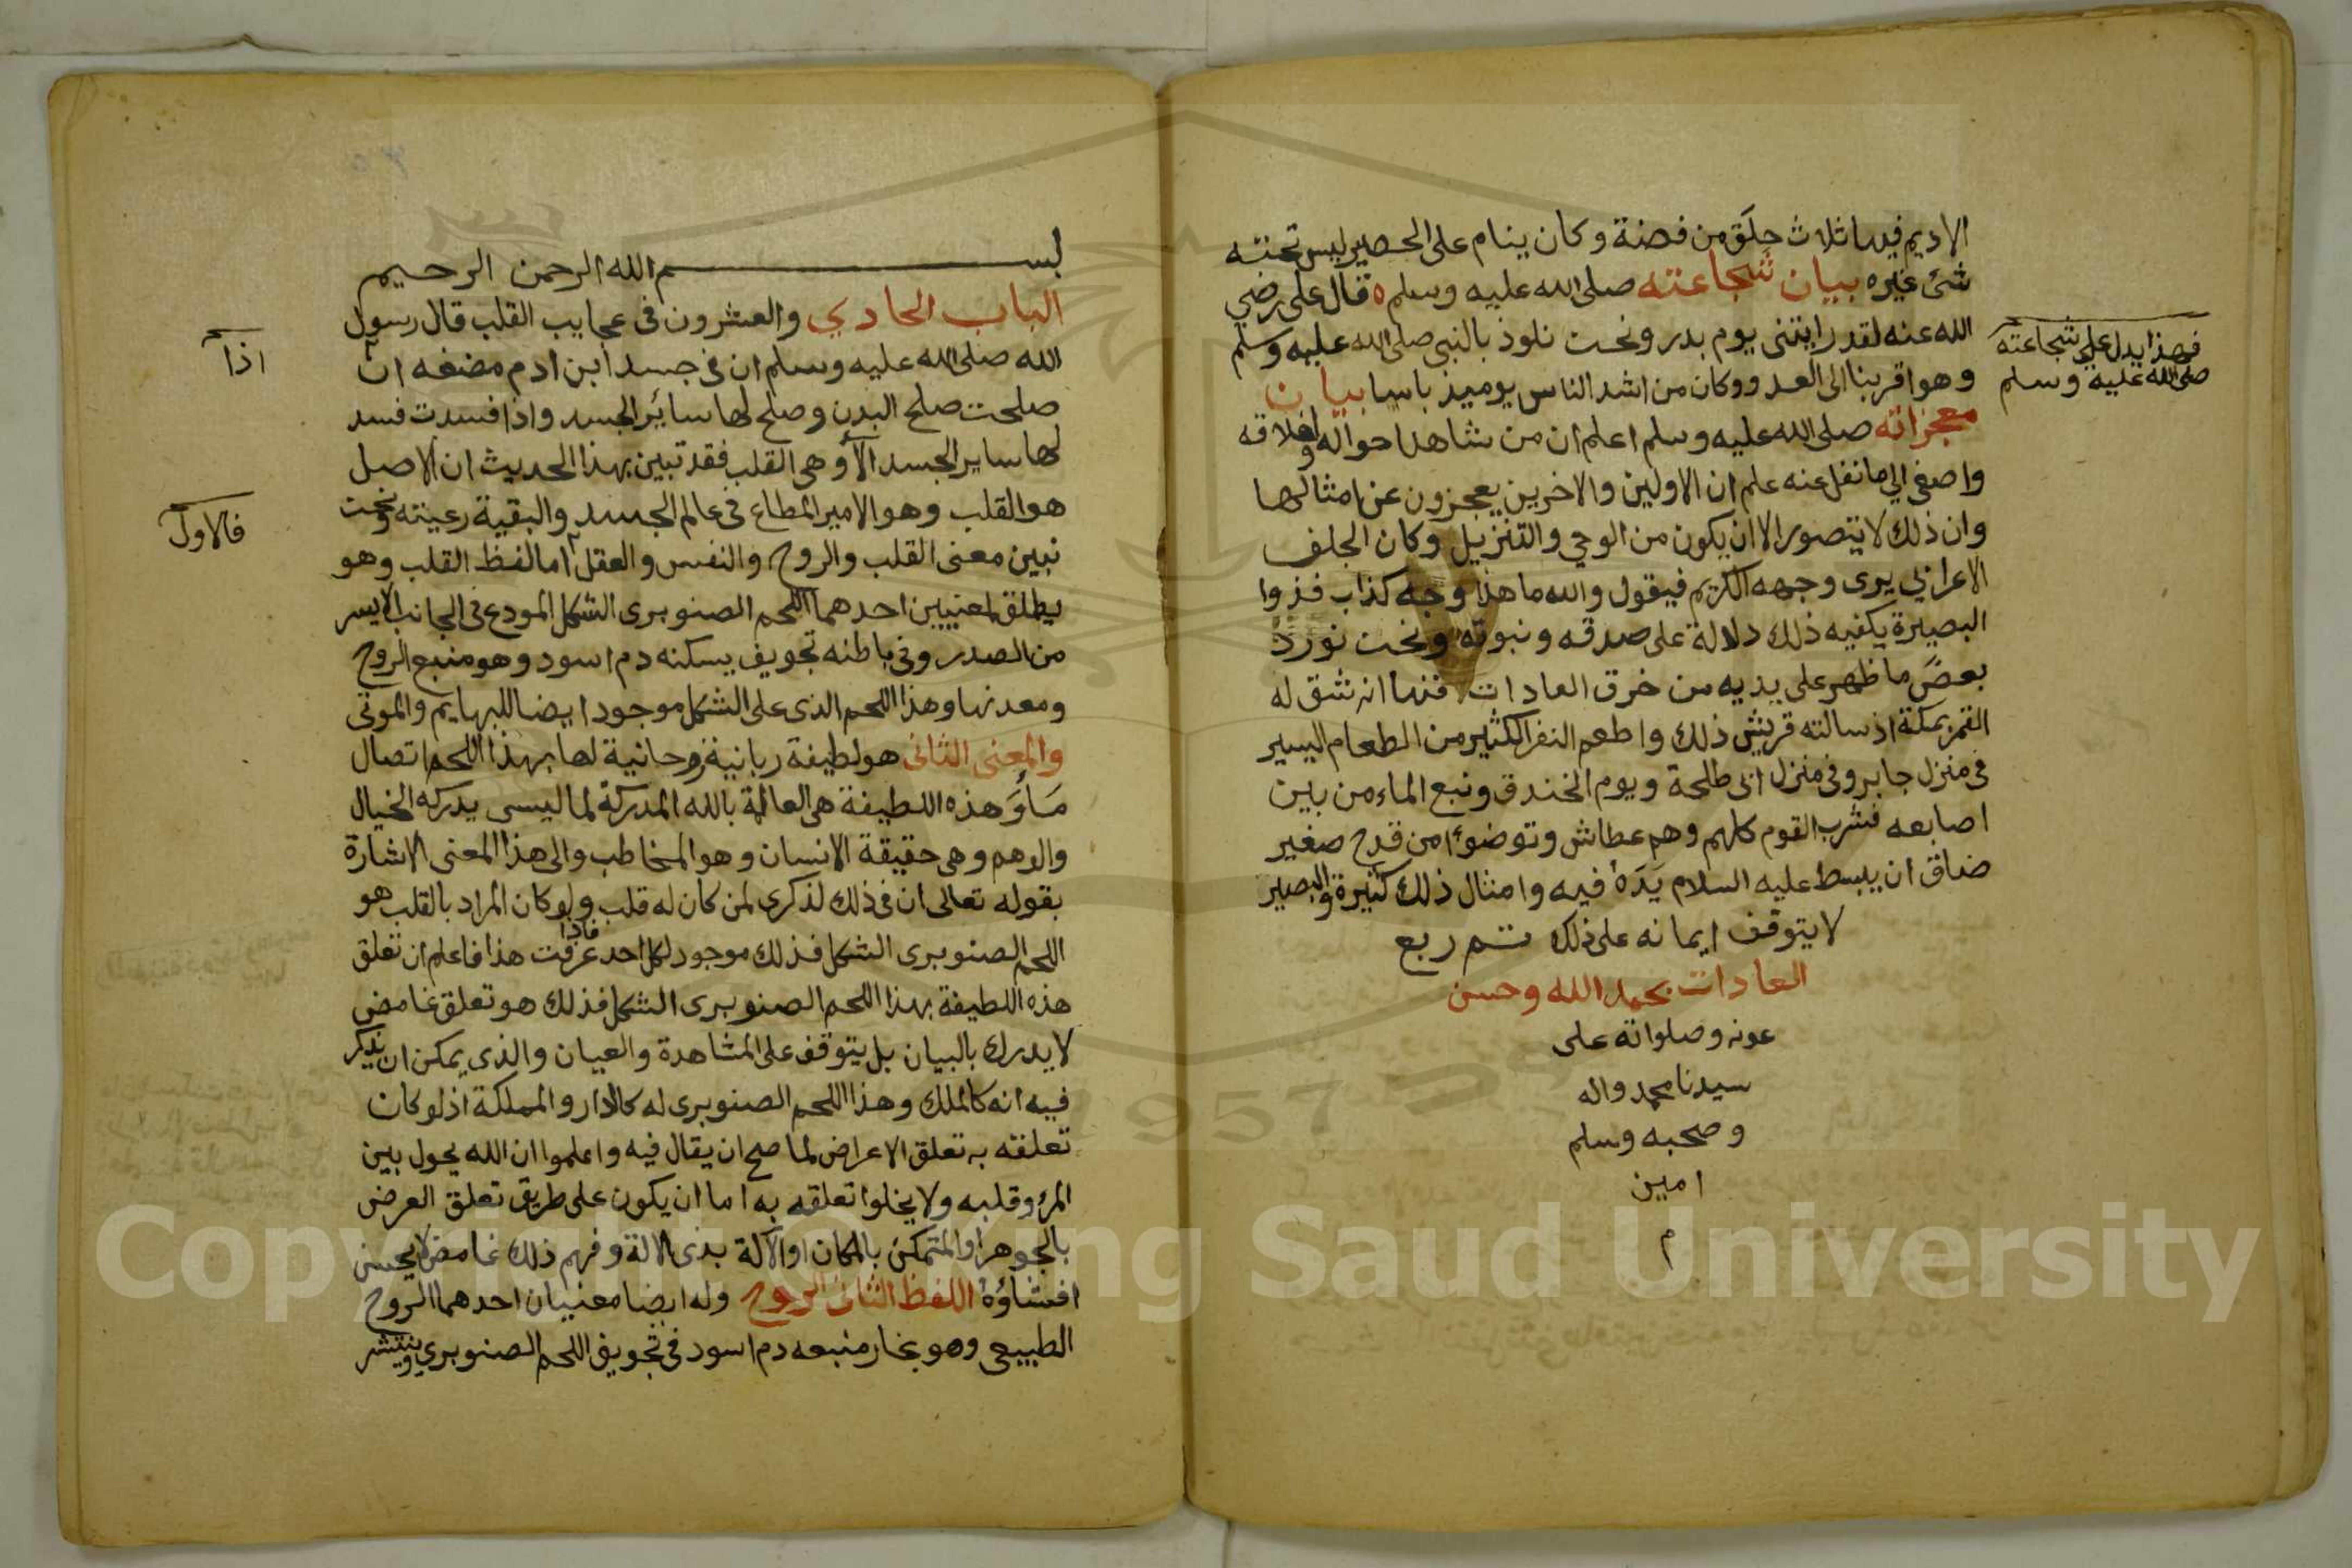 الاديم فيها ثلاث حلق من فضة وكان ينام على الحصير ليس تحته
شئ غيره بيان شجاعته صلى الله عليه وسلم ه قال على رضي
الله عنه لقد رايتنى يوم بدر ونحن نلوذ بالنبى صلى الله عليه وسلم
فهذا يدل على شجاعته
صلى الله عليه وسلم
وهو اقربنا الى العدو وكان من اشد الناس يوميذ باسا بيان
معجزاته صلى الله عليه وسلم اعلم ان من شاهد احواله واخلاقه
واصغى الى ما نقل عنه علم ان الاولين والاخرين يعجزون عن امثالها
وان ذلك لا يتصور الا ان يكون من الوحي والتنزيل وكان الجلف
الاعرابى يرى وجهه الكريم فيقول والله ما هذا وجه كذاب فذوا
البصيرة يكفيه ذلك دلالة على صدقه ونبوته ونحن نورد
بعض ما ظهر على يديه من خرق العادات فمنها انه شق له
القمر بمكة اذ سالته قريش ذلك واطعم النفر الكثير من الطعام اليسير
فى منزل جابر وفى منزل ابى طلحة ويوم الخندق ونبع الماء من بين
اصابعه فشرب القوم كلهم وهم عطاش وتوضوا من قدح صغير
ضاق ان يبسط عليه السلام يده فيه وامثال ذلك كثيرة والبصير
لا يتوقف ايمانه على ذلك تم ربع
العادات بحمد الله وحسن
عونه وصلواته على
سيدنا محمد واله
وصحبه وسلم
امين
م
بسم الله الرحمن الرحيم
الباب الحادي والعشرون فى عجايب القلب قال رسول
الله صلى الله عليه وسلم ان فى جسد ابن ادم مضغه ان
اذا
صلحت صلح البدن وصلح لها سائر الجسد واذا فسدت فسد
لها ساير الجسد الا وهى القلب فقد تبين بهذا الحديث ان الاصل
هو القلب وهو الامير المطاع فى عالم الجسد والبقية رعيته ونحن
نبين معنى القلب والروح والنفس والعقل اما لفظ القلب وهو
فالاول
يطلق لمعنيين احدهما اللحم الصنوبرى الشكل المودع فى الجانب الايسر
من الصدر وفى باطنه تجويف يسكنه دم اسود وهو منبع الروح
ومعدنها وهذا اللحم الذى على الشكل موجود ايضا للبهايم والموتى
والمعنى الثانى هو لطيفة ربانية روحانية لها بهذا اللحم اتصال
هذه اللطيفة هى العالمة بالله المدركة لما ليسى يدركه الخيال
والوهم وهى حقيقة الانسان وهو المخاطب والى هذا المعنى الاشارة
بقوله تعالى ان فى ذلك لذكرى لمن كان له قلب ولو كان المراد بالقلب هو
اللحم الصنوبرى الشكل فذلك موجود لكل احد فاذا عرفت هذا فاعلم ان تعلق
هذه اللطيفة بهذا اللحم الصنوبرى الشكل فذلك هو تعلق غامض
لا يدرك بالبيان بل يتوقف على المشاهدة والعيان والذى يمكن ان يذكر
فيه انه كالملك وهذا اللحم الصنوبرى له كالدار والمملكة اذ لو كان
تعلقه به تعلق الاعراض لما صح ان يقال فيه واعلموا ان الله يحول بين
المرء وقلبه ولا يخلوا تعلقه به اما ان يكون على طريق تعلق العرض
بالجوهر او المتمكن بالمكان او الآلة بذى الالة وفهم ذلك غامض لا يحسن
افشاؤه اللفظ الثانى الروح وله ايضا معنيان احدهما الروح
الطبيعى وهو بخار منبعه دم اسود فى تجويف اللحم الصنوبري وينتشر
Copyright © King Saud University
1957